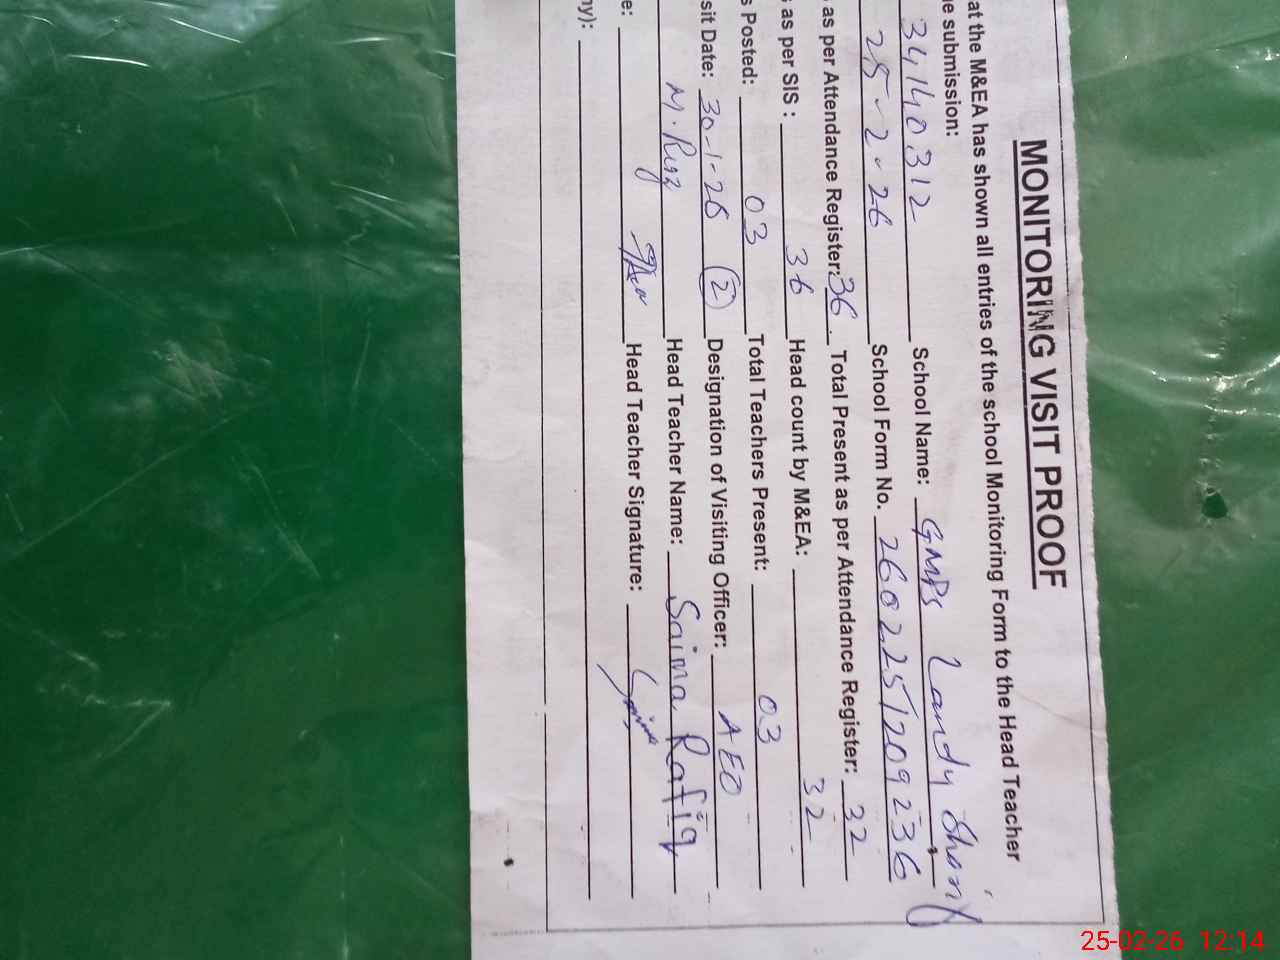 MONITORING VISIT PROOF
at the M&EA has shown all entries of the school Monitoring Form to the Head Teacher
e submission:
34140312 School Name: GMPS Landy Sharif
25-2-26 School Form No. 2602251209236
as per Attendance Register: 36 Total Present as per Attendance Register: 32
as per SIS : 36 Head count by M&EA: 32
s Posted: 03 Total Teachers Present: 03
sit Date: 30-1-26 (2) Designation of Visiting Officer: AEO
M. Riaz Head Teacher Name: Saima Rafiq
e: Head Teacher Signature: Saima
ny):
25-02-26 12:14